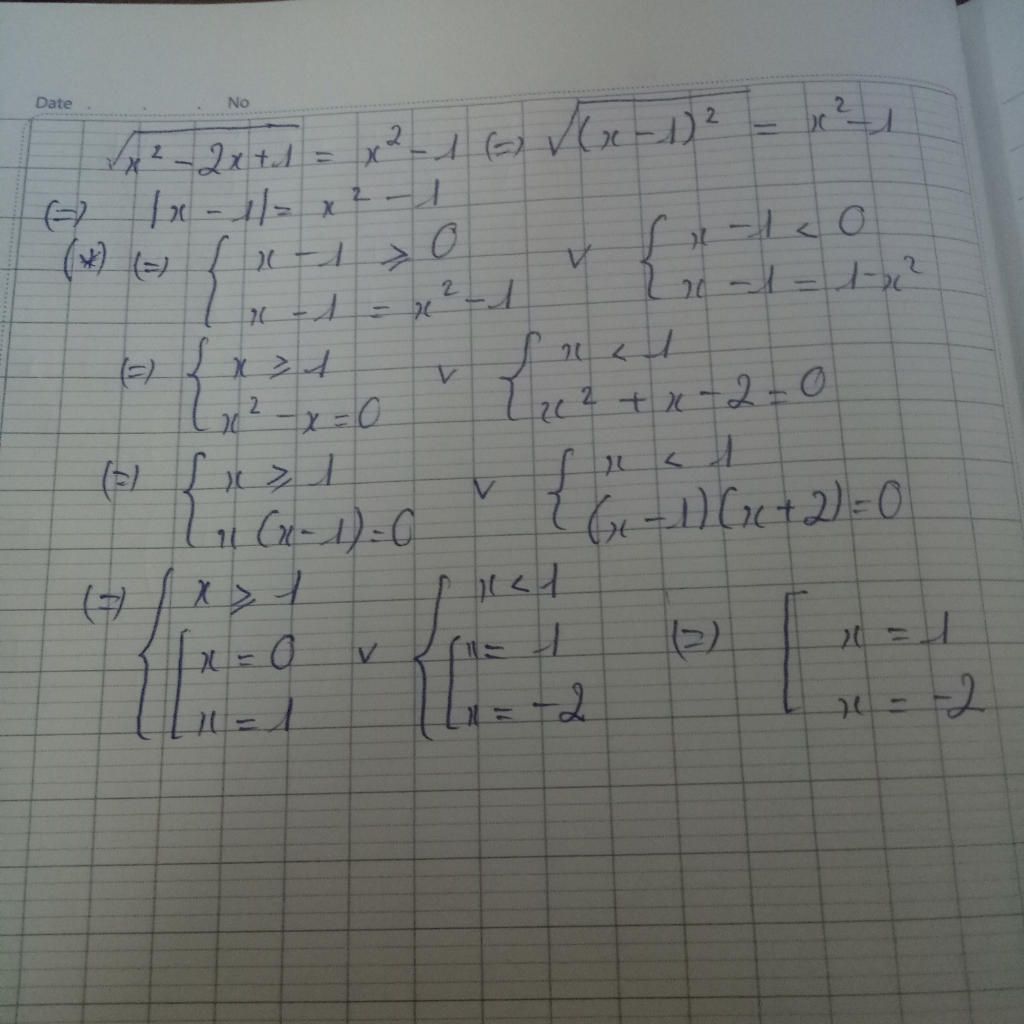 Date . . . No
√(x² - 2x + 1) = x² - 1 (=) √((x - 1)²) = x² - 1
(=) |x - 1| = x² - 1
(*) (=) { x - 1 ⩾ 0 v { x - 1 < 0
x - 1 = x² - 1 x - 1 = 1 - x²
(=) { x ⩾ 1 v { x < 1
x² - x = 0 x² + x - 2 = 0
(=) { x ⩾ 1 v { x < 1
x (x - 1) = 0 (x - 1) (x + 2) = 0
(=) { x ⩾ 1 { x < 1
[ x = 0 v [ x = 1 (=) [ x = 1
x = 1 x = -2 x = -2